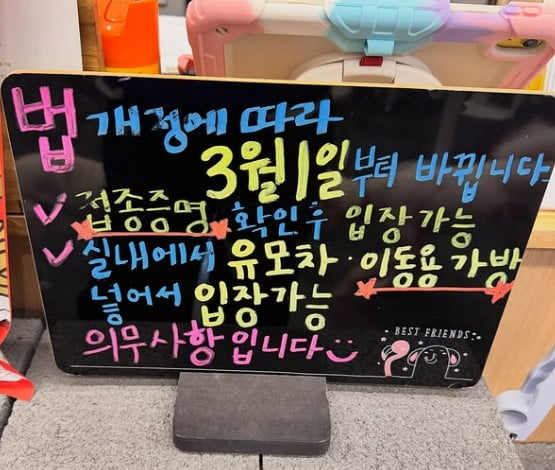 법 개정에 따라
3월1일부터 바뀝니다
접종증명 확인후 입장가능
실내에서 유모차·이동용가방
넣어서 입장가능
의무사항입니다
BEST FRIENDS